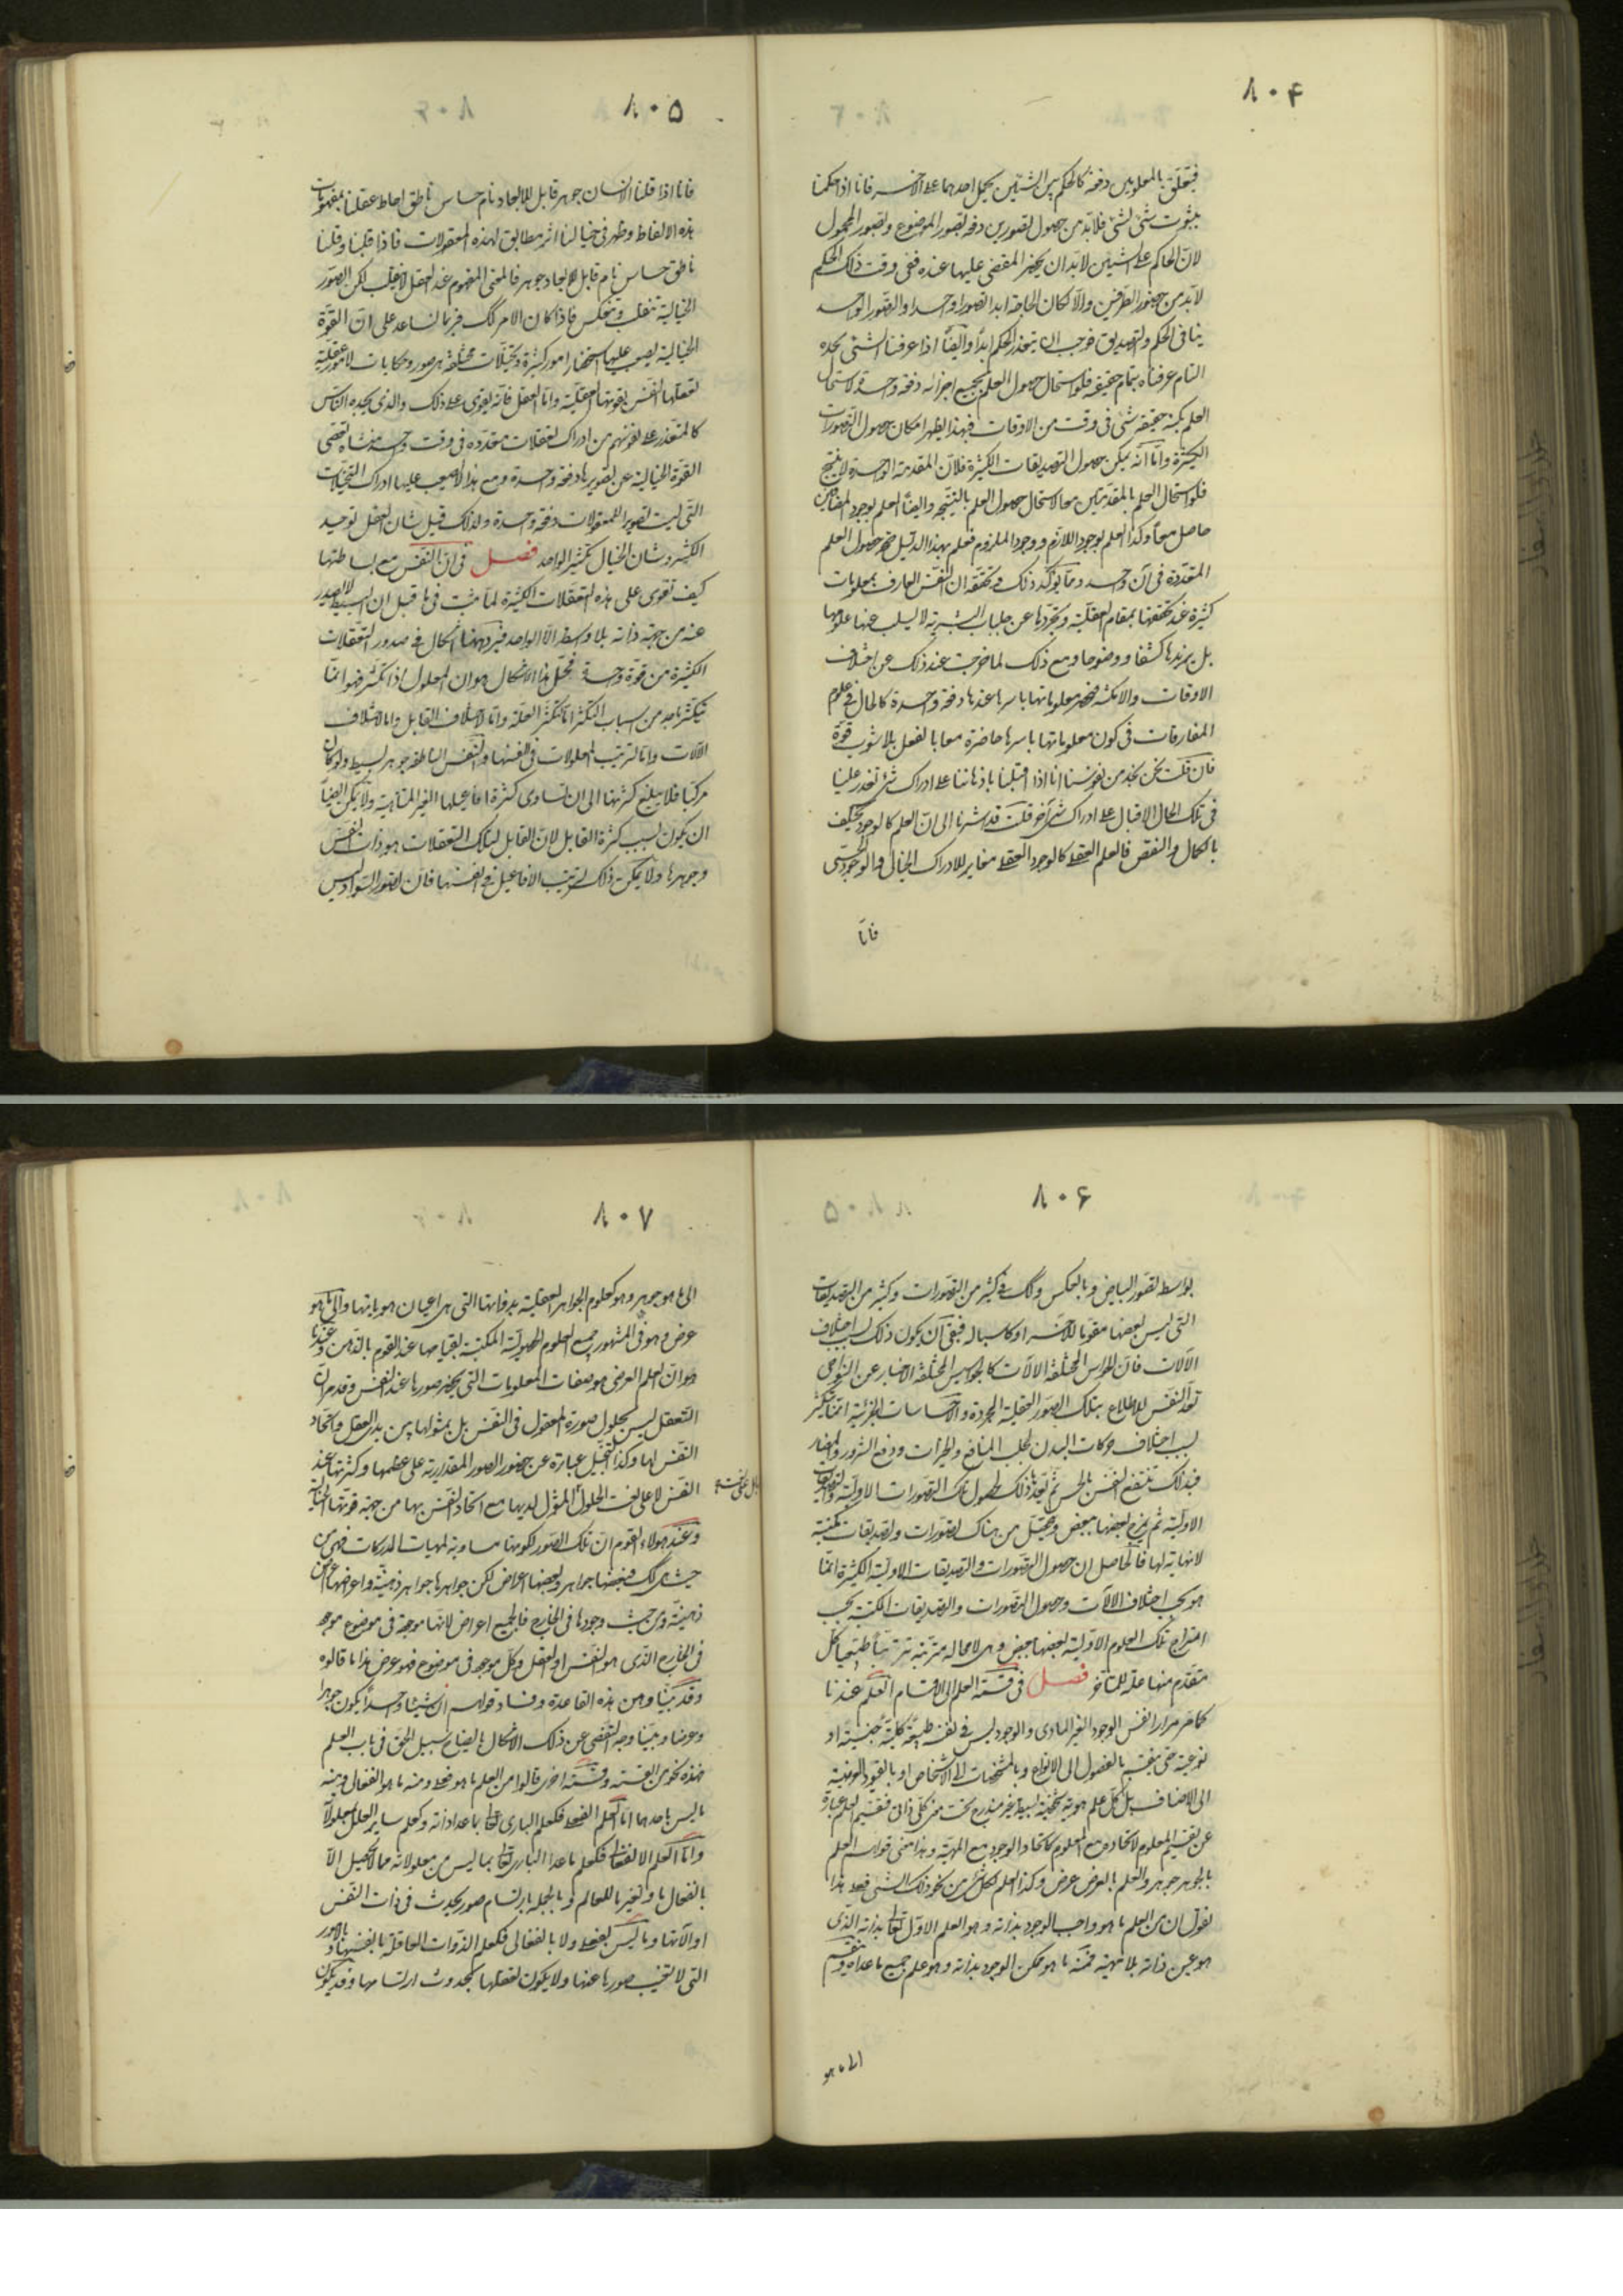 ٨٠۴
فيتعلق بالمعلومين دفعة كالحكم بين الشيئين بحمل احدهما على الآخر فانا اذا حكمنا
بثبوت شئ لشئ فلابد من حصول تصورين دفعة تصور الموضوع وتصور المحمول
لان الحاكم على الشيئين لابد ان يحضره المقضى عليهما عنده ففى وقت ذلك الحكم
لابد من حضور الطرفين والا لكان الحاجة ابدا تصورا واحدا والتصور الواحد
ينافى الحكم والتصديق فوجب ان يتعذر الحكم ابدا وايضا اذا عرفنا الشئ بحده
التام عرفناه بتمام حقيقته فلو استحال حصول العلم بجميع اجزائه دفعة واحدة لاستحال
العلم بكنه حقيقة شئ فى وقت من الاوقات فبهذا يظهر امكان حصول التصورات
الكثيرة واما انه يمكن حصول التصديقات الكثيرة فلان المقدمة الواحدة لا ينتج
فلو استحال العلم بالمقدمتين معا لاستحال حصول العلم بالنتيجة وايضا العلم بوجود المضافين
حاصل معا وكذا العلم بوجود اللازم ووجود الملزوم فعلم بهذا الدليل صحة حصول العلم
المتعددة فى آن واحد ومما يؤكد ذلك ويحققه ان النفس العارف بمعلومات
كثيرة عند تحققها بمقام العقلية وتجردها عن جلباب البشرية لا يسلب عنها علومها
بل يزيدها كشفا ووضوحا ومع ذلك لما خرجت عند ذلك عن اختلاف
الاوقات والامكنة فيحضر معلوماتها باسرها عندها دفعة واحدة كالحال فى علوم
المفارقات فى كون معلوماتها باسرها حاضرة معا بالفعل بلا شوب قوة
فان قلت نحن نجد من نفوسنا انا اذا اقبلنا باذهاننا على ادراك شئ تعذر علينا
فى تلك الحال الاقبال على ادراك شئ آخر قلت قد اشرنا الى ان العلم كالوجود يختلف
بالكمال والنقص فالعلم العقلى كالوجود العقلى مغاير للادراك الخيالى والوجود الحسى
فانا
٨٠۵
فانا اذا قلنا الانسان جوهر قابل للابعاد نام حساس ناطق احاط عقلنا بمفهومات
هذه الالفاظ وظهر فى خيالنا اثر مطابق لهذه المعقولات فاذا قلبنا وقلنا
ناطق حساس نام قابل للابعاد جوهر فالمعنى المفهوم عند العقل لا ينقلب لكن الصور
الخيالية تنقلب وتنعكس فاذا كان الامر كك فربما نساعد على ان القوة
الخيالية يصعب عليها استحضار امور كثيرة وتخيلات مختلفة هى صور وحكايات لامور عقلية
تعقلها النفس بقوتها العقلية واما العقل فانه يقوى على ذلك والذى يجده الناس
كالمتعذر على نفوسهم من ادراك تعقلات متعددة فى وقت واحد منشاه تعصى
القوة الخيالية عن تصويرها دفعة واحدة ومع هذا لا يصعب عليها ادراك التخيلات
التى ليست تصويرا للمعقولات دفعة واحدة ولذلك قيل شان العقل توحيد
الكثير وشان الخيال تكثير الواحد فصل فى ان النفس مع بساطتها
كيف تقوى على هذه التعقلات الكثيرة لما ثبت فى ما قبل ان البسيط لا يصدر
عنه من جهة ذاته بلا واسطة الا الواحد فيرد ههنا اشكال فى صدور التعقلات
الكثيرة من قوة واحدة فحل هذا الاشكال هو ان المعلول اذا تكثر فهو انما
يتكثر باحد من اسباب التكثر اما لتكثر العلة واما لاختلاف القابل واما لاختلاف
الآلات واما لترتيب المعلولات فى انفسها والنفس الناطقة جوهر بسيط ولو كان
مركبا فلا يبلغ كثرتها الى ان تساوى كثرة افاعيلها الغير المتناهية ولا يمكن ايضا
ان يكون بسبب كثرة القابل لان القابل لتلك التعقلات هو ذات النفس
وجوهرها ولا يمكن ذلك لترتيب الافاعيل فى انفسها فان تصور السواد ليس
٨٠۶
بواسطة تصور البياض وبالعكس وكك فى كثير من التصورات وكثير من التصديقات
التى ليس بعضها مقوما للآخر او كاسبا له فبقى ان يكون ذلك بسبب اختلاف
الآلات فان الحواس المختلفة الآلات كالجواسيس المختلفة الاخبار عن النواحى
تعد النفس للاطلاع بتلك الصور العقلية المجردة والاحساسات الجزئية انما تتكثر
بسبب اختلاف حركات البدن لجلب المنافع والخيرات ودفع الشرور والمضار
فبذلك تنتفع النفس بالحس ثم يعدها ذلك لحصول تلك التصورات الاولية والتصديقات
الاولية ثم يمتزج بعضها ببعض ويتحصل من هناك تصورات وتصديقات مكتسبة
لا نهاية لها فالحاصل ان حصول التصورات والتصديقات الاولية الكثيرة انما
هو بحسب اختلاف الآلات وحصول التصورات والتصديقات المكتسبة بحسب
امتزاج تلك العلوم الاولية بعضها ببعض وهى لا محالة مترتبة ترتبا طبيعيا كل
متقدم منها علة للمتاخر فصل فى قسمة العلم الى الاقسام العلم عندنا
كما مر مرارا نفس الوجود الغير المادى والوجود ليس فى نفسه طبيعة كلية جنسية او
نوعية حتى ينقسم بالفصول الى الانواع وبالمشخصات الى الاشخاص او بالقيود العرضية
الى الاصناف بل كل علم هوية شخصية بسيطة غير مندرجة تحت معنى كلى ذاتى فتقسيم العلم عبارة
عن تقسيم المعلوم لاتحاده مع المعلوم كاتحاد الوجود مع المهية وهذا معنى قولهم العلم
بالجوهر جوهر والعلم بالعرض عرض وكذا العلم بكل شئ من نحو ذلك الشئ فعلى هذا
نقول ان من العلم ما هو واجب الوجود بذاته وهو العلم الاول تعالى بذاته الذى
هو عين ذاته بلا مهية ومنه ما هو ممكن الوجود بذاته وهو علم جميع ما عداه وينقسم
الى ما هو
٨٠٧
الى ما هو جوهر وهو كعلوم الجواهر العقلية بذواتها التى هى اعيان هوياتها والى ما هو
عرض وهو فى المشهور جميع العلوم الحصولية المكتسبة لقيامها عند القوم بالذهن وعندنا
هو ان العلم العرضى هو صفات المعلومات التى يحضر صورها عند النفس وقد مر ان
التعقل ليس بحلول صورة المعقول فى النفس بل بمثولها بين يدى العقل واتحاد
النفس لها وكذا التخيل عبارة عن حضور الصور المقدارية على عظمها وكثرتها عند
النفس لا على نعت الحلول المثول لديها مع اتحاد النفس بها من جهة قوتها الخيالية
بل على نعت
وعند هؤلاء القوم ان تلك الصور لكونها مساوية لمهيات المدركات فهى من
حيث هى كك فبعضها جواهر وبعضها اعراض لكن جواهرها جواهر ذهنية واعراضها اعراض
ذهنية ومن حيث وجودها فى الخارج فالجميع اعراض لانها موجودة فى موضوع موجود
فى الخارج الذى هو النفس او العقل وكل موجود فى موضوع فهو عرض هذا ما قالوه
وقد بينا وهن هذه القاعدة وفساد قولهم ان شيئا واحدا يكون جوهرا
وعرضا وبينا وجه التفصى عن ذلك الاشكال بايضاح سبيل الحق فى باب العلم
فهذه نحو من القسمة وقسمة اخرى قالوا من العلم ما هو فعلى ومنه ما هو انفعالى ومنه
ما ليس باحدهما اما العلم الفعلى فكعلم البارى تعالى بما عدا ذاته وكعلم ساير العلل بمعلولاتها
واما العلم الانفعالى فكعلم ما عدا البارى تعالى بما ليس من معلولاته مما لا يحصل الا
بانفعال ما وتغير ما للعالم وبالجملة بارتسام صور يحدث فى ذات النفس
او آلاتها وما ليس بفعلى ولا بانفعالى فكعلم الذوات العاقلة بانفسها وبالامور
التى لا تغيب صورها عنها ولا يكون تعقلها بحدوث ارتسامها وقد يكون